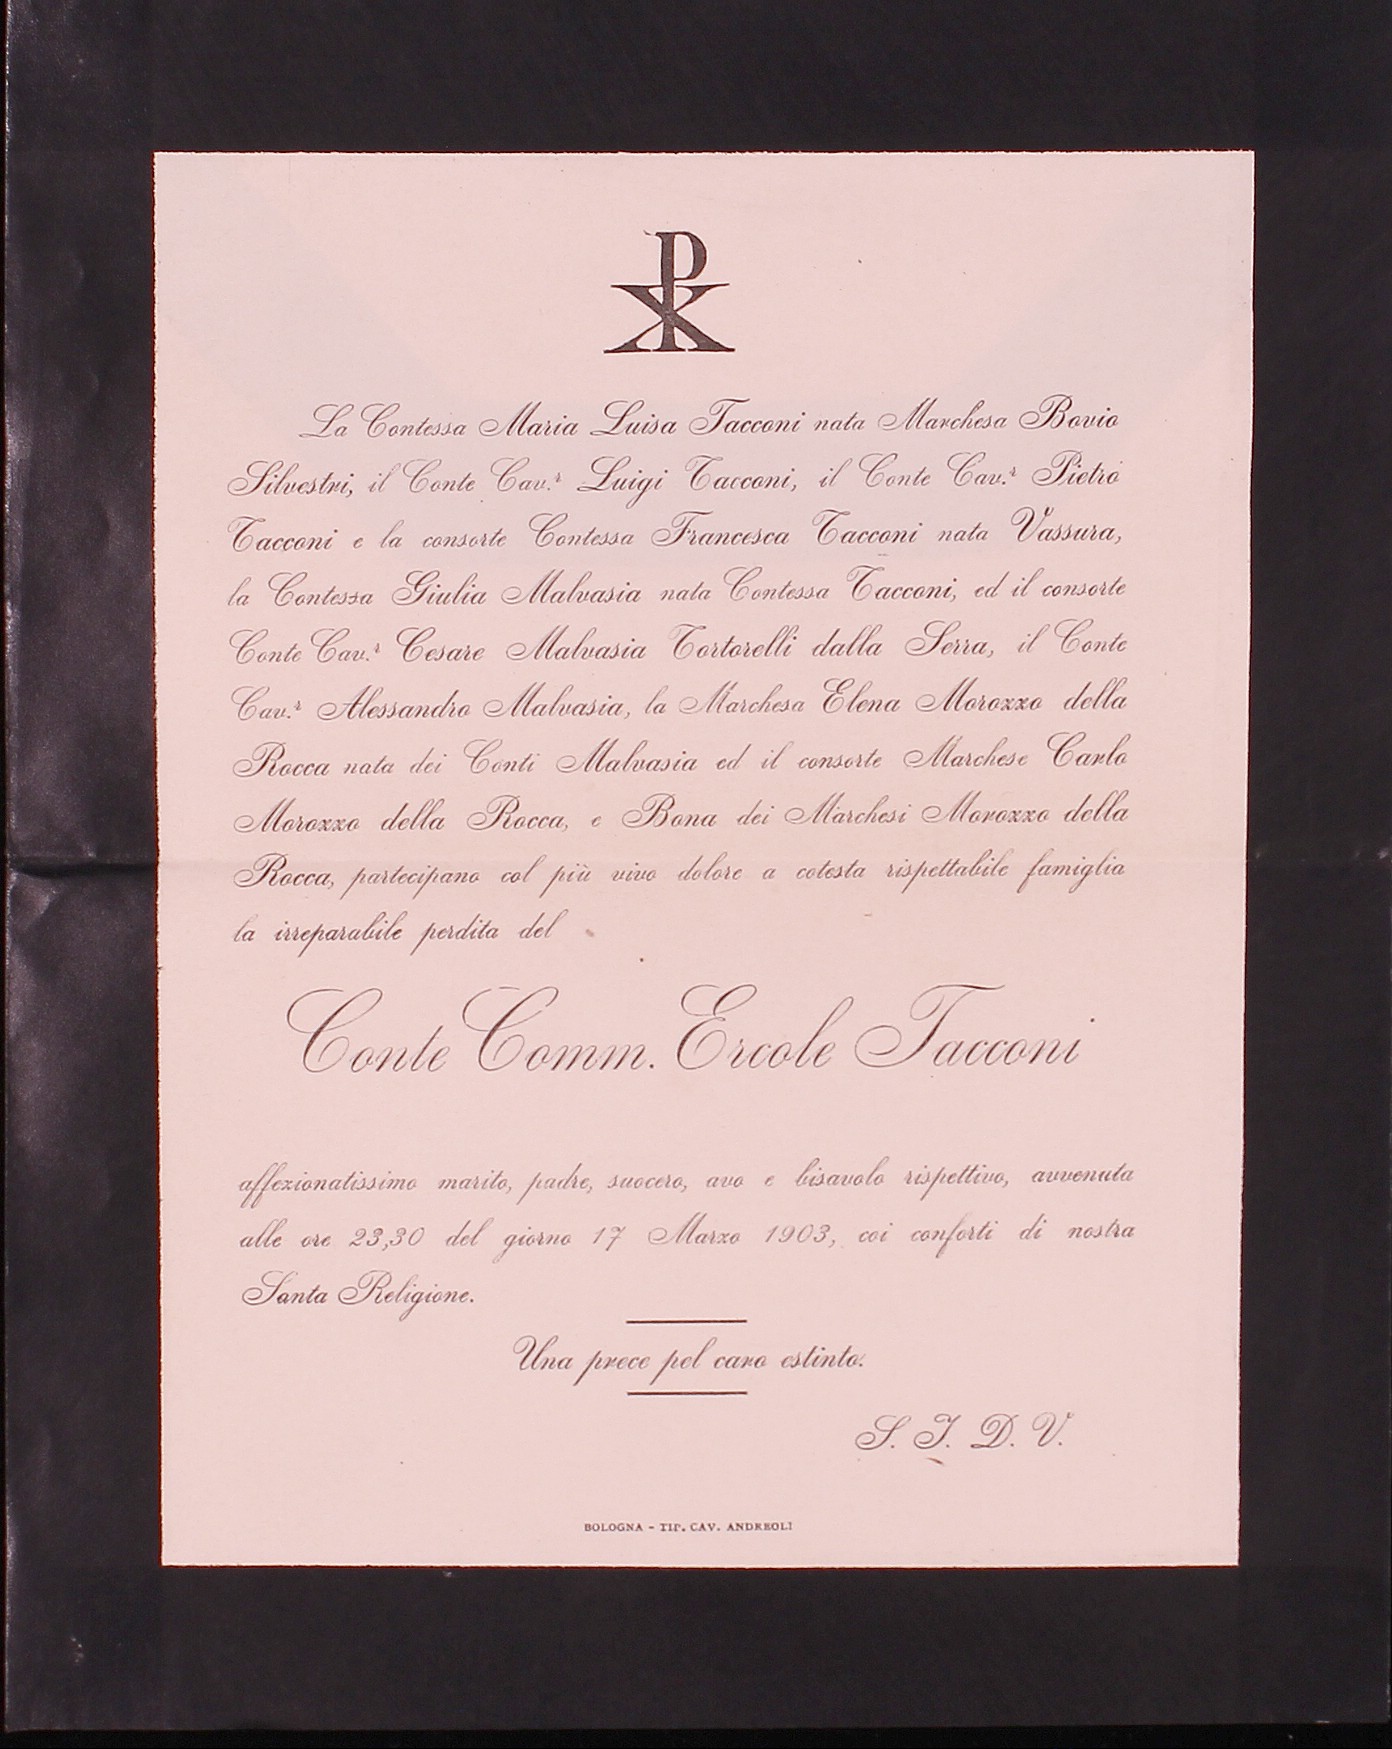 La Contessa Maria Luisa Tacconi nata Marchesa Bovio
Silvestri, il Conte Cav.r Luigi Tacconi, il Conte Cav.r Pietro
Tacconi e la consorte Contessa Francesca Tacconi nata Vassura,
la Contessa Giulia Malvasia nata Contessa Tacconi, ed il consorte
Conte Cav.r Cesare Malvasia Tortorelli dalla Serra, il Conte
Cav.r Alessandro Malvasia, la Marchesa Elena Morozzo della
Rocca nata dei Conti Malvasia ed il consorte Marchese Carlo
Morozzo della Rocca, e Bona dei Marchesi Morozzo della
Rocca, partecipano col più vivo dolore a cotesta rispettabile famiglia
la irreparabile perdita del
Conte Comm. Ercole Tacconi
affezionatissimo marito, padre, suocero, avo e bisavolo rispettivo, avvenuta
alle ore 23,30 del giorno 17 Marzo 1903, coi conforti di nostra
Santa Religione.
Una prece pel caro estinto.
S. I. D. V.
BOLOGNA - TIP. CAV. ANDREOLI